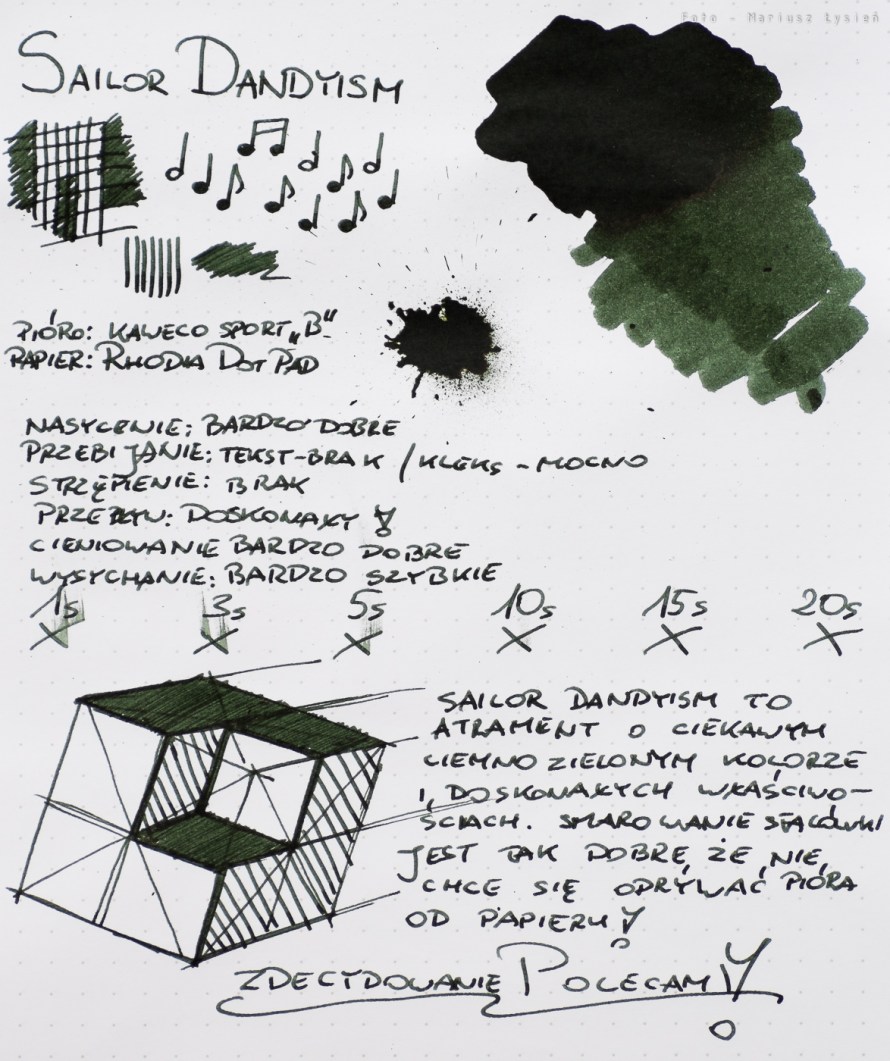 Foto - Mariusz Łysień
SAILOR DANDYISM
PIÓRO: KAWECO SPORT „B"
PAPIER: RHODIA DOT PAD
NASYCENIE: BARDZO DOBRE
PRZEBIJANIE: TEKST-BRAK / KLEKS - MOCNO
STRZĘPIENIE: BRAK
PRZEPŁYW: DOSKONAŁY!
CIENIOWANIE BARDZO DOBRE
WYSYCHANIE: BARDZO SZYBKIE
1s 3s 5s 10s 15s 20s
SAILOR DANDYISM TO
ATRAMENT O CIEKAWYM
CIEMNOZIELONYM KOLORZE
I DOSKONAŁYCH WŁAŚCIWO-
ŚCIACH. SMAROWANIE STALÓWKI
JEST TAK DOBRE, ŻE NIE
CHCE SIĘ ODRYWAĆ PIÓRA
OD PAPIERU!
ZDECYDOWANIE POLECAM!